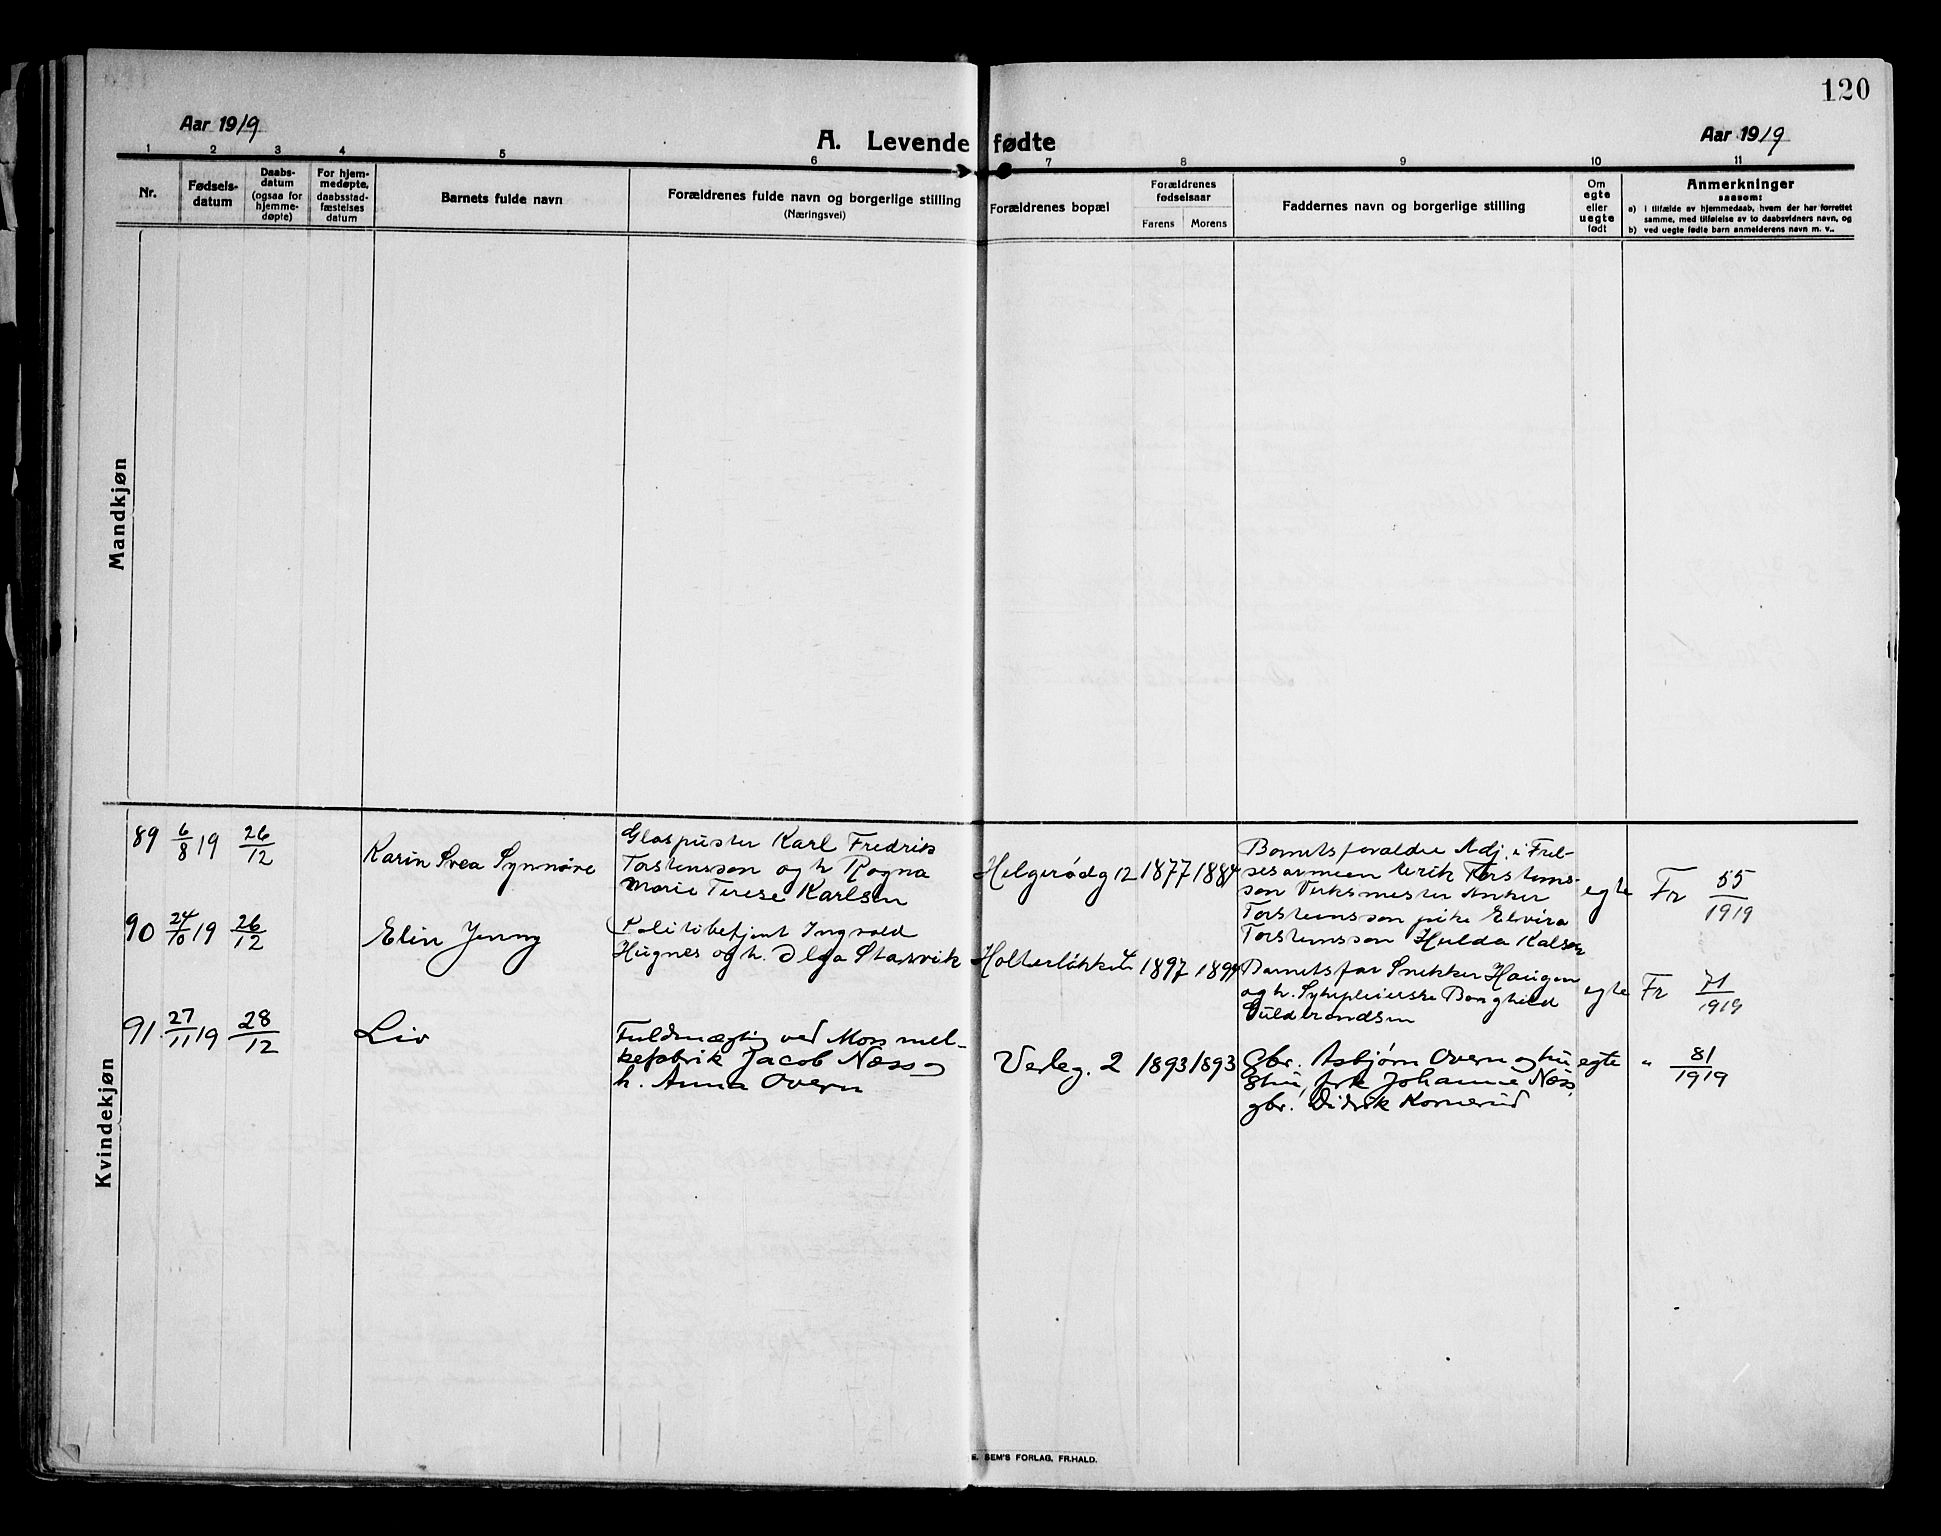 120
Aar 1919
A. Levende fødte
Aar 1919
1 2 3 4 5 6 7 8 9 10 11
Nr.
Fødsels-
datum
Daabs-
datum
(ogsaa for
hjemme-
døpte)
For hjem-
medøpte,
daabsstad-
fæstelses
datum
Barnets fulde navn
Forældrenes fulde navn og borgerlige stilling
(Næringsvei)
Forældrenes bopæl
Forældrenes
fødselsaar
Farens Morens
Faddernes navn og borgerlige stilling
Om
egte
eller
uegte
født
Anmerkninger
saasom:
a) i tilfælde av hjemmedaab, hvem der har forrettet
samme, med tilføielse av to daabsvidners navn, og
b) ved uegte fødte barn anmelderens navn m. v..
Mandkjøn
Kvindekjøn
89 6/8 19 26/12
Karin Svea Synnøve
Glaspuster Karl Fredrik
Torstensson og h Ragna
Marie Terese Karlsen
Helgerødg 12 1877 1884
Barnets foraldre Adj. i Frel-
sesarmeen Erik Torstens-
son Anker
Torstensson pike Elvira
Torstensson Hulda Kalsen
egte
Fr 55/1919
90 24/10 19 26/12
Elin Jenny
Politibetjent Ingvald
Hugnes og h. Olga Starvik
Holterløkka 1897 1894
Barnets far Snekker Haugen
og h. Sykepleierske Borghild
Guldbrandsen
egte
Fr 71/1919
91 27/11 19 28/12
Liv
Fuldmægtig ved Moss mel-
kefabrik Jacob Næss
h. Anna Overn
Verleg. 2 1893 1893
Gbr. Asbjørn Overn og hu
stru, frk Johanne Næss,
gbr. Didrik Kornerud
egte
" 81/1919
E. SEM'S FORLAG, FR.HALD.